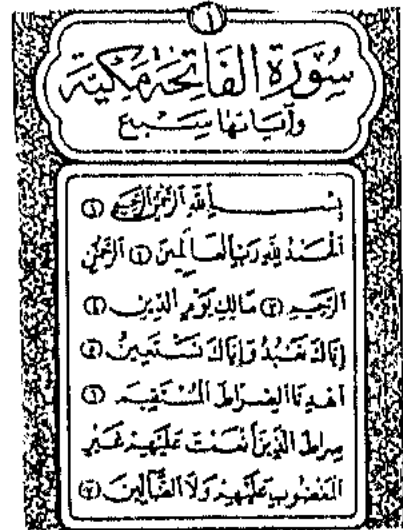 ١
سُورَةُ الفَاتِحَةِ مَكِّيَّة
وآيَاتُهَا سَبْعٌ
بِسْمِ اللَّهِ الرَّحْمَٰنِ الرَّحِيمِ ١
الْحَمْدُ لِلَّهِ رَبِّ الْعَالَمِينَ ٢ الرَّحْمَٰنِ
الرَّحِيمِ ٣ مَالِكِ يَوْمِ الدِّينِ ٤
إِيَّاكَ نَعْبُدُ وَإِيَّاكَ نَسْتَعِينُ ٥
اهْدِنَا الصِّرَاطَ الْمُسْتَقِيمَ ٦
صِرَاطَ الَّذِينَ أَنْعَمْتَ عَلَيْهِمْ غَيْرِ
الْمَغْضُوبِ عَلَيْهِمْ وَلَا الضَّالِّينَ ٧